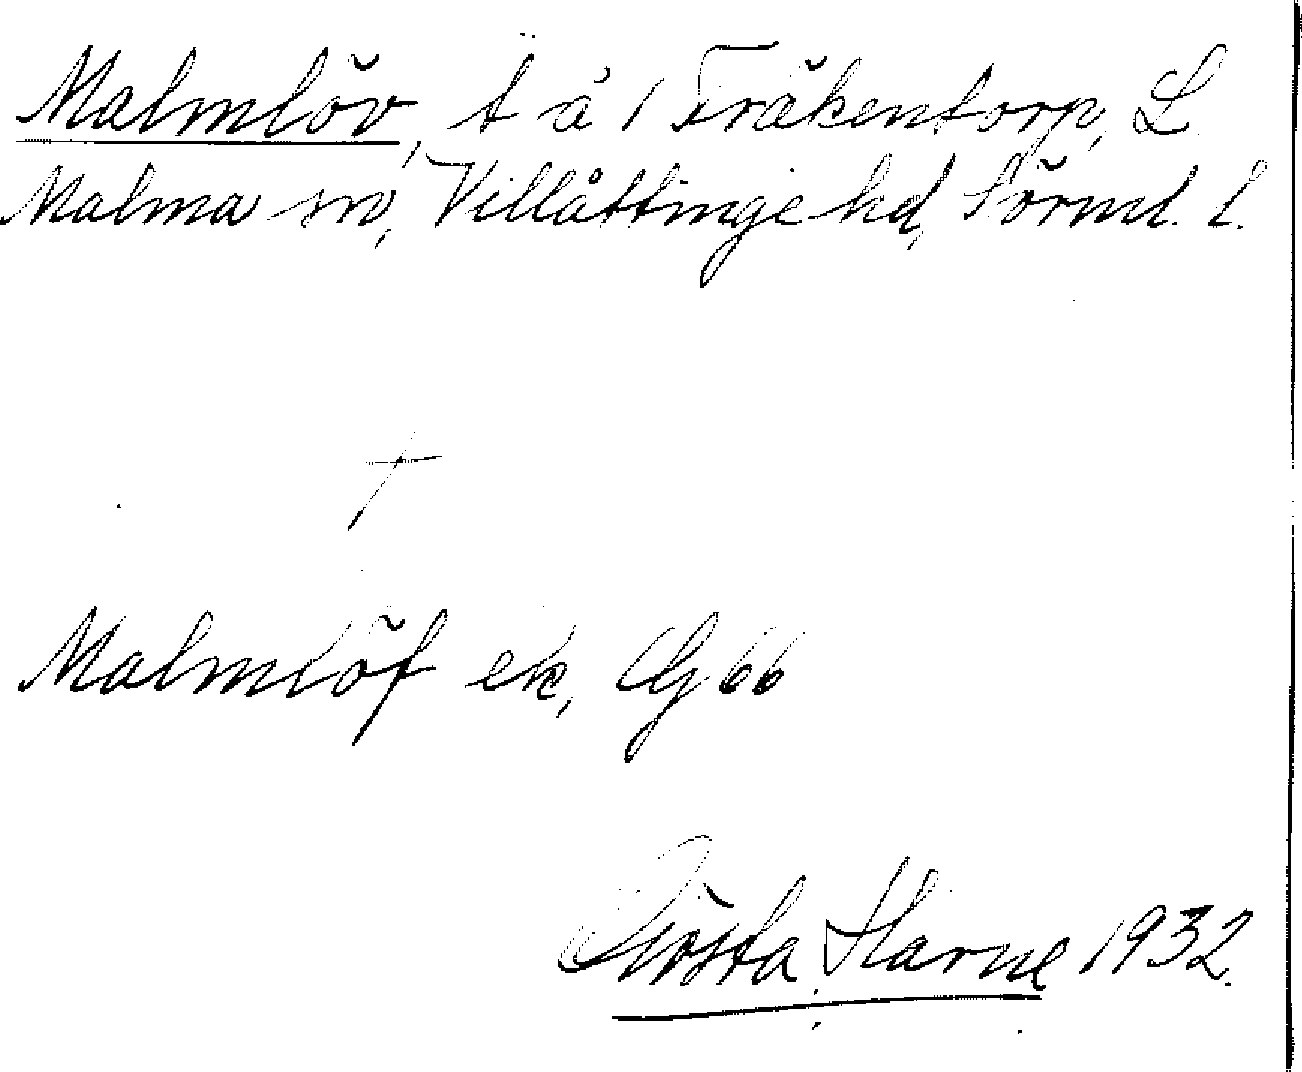 Malmlöv, t å 1 Fräkentorp, L
Malma sn, Villåttinge hd, Sörml. l.
†
Malmlöf ek, Gg 66
Gösta Harne 1932.